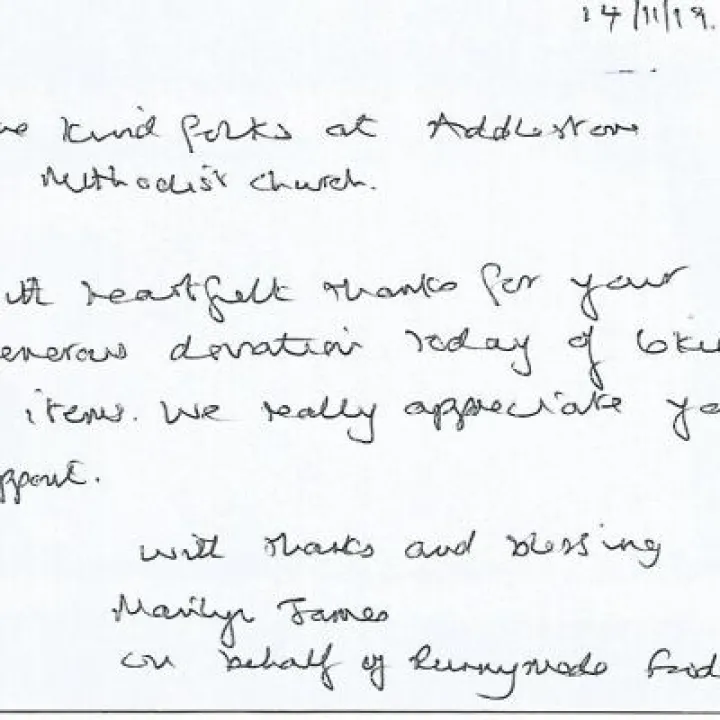 14/11/19.
kind folks at Addlestone
Methodist Church.
heartfelt thanks for your
enerous donation today of 6k
items. We really appreciate yo
pport.
with thanks and blessing
Marilyn James
on behalf of Runnymede Food